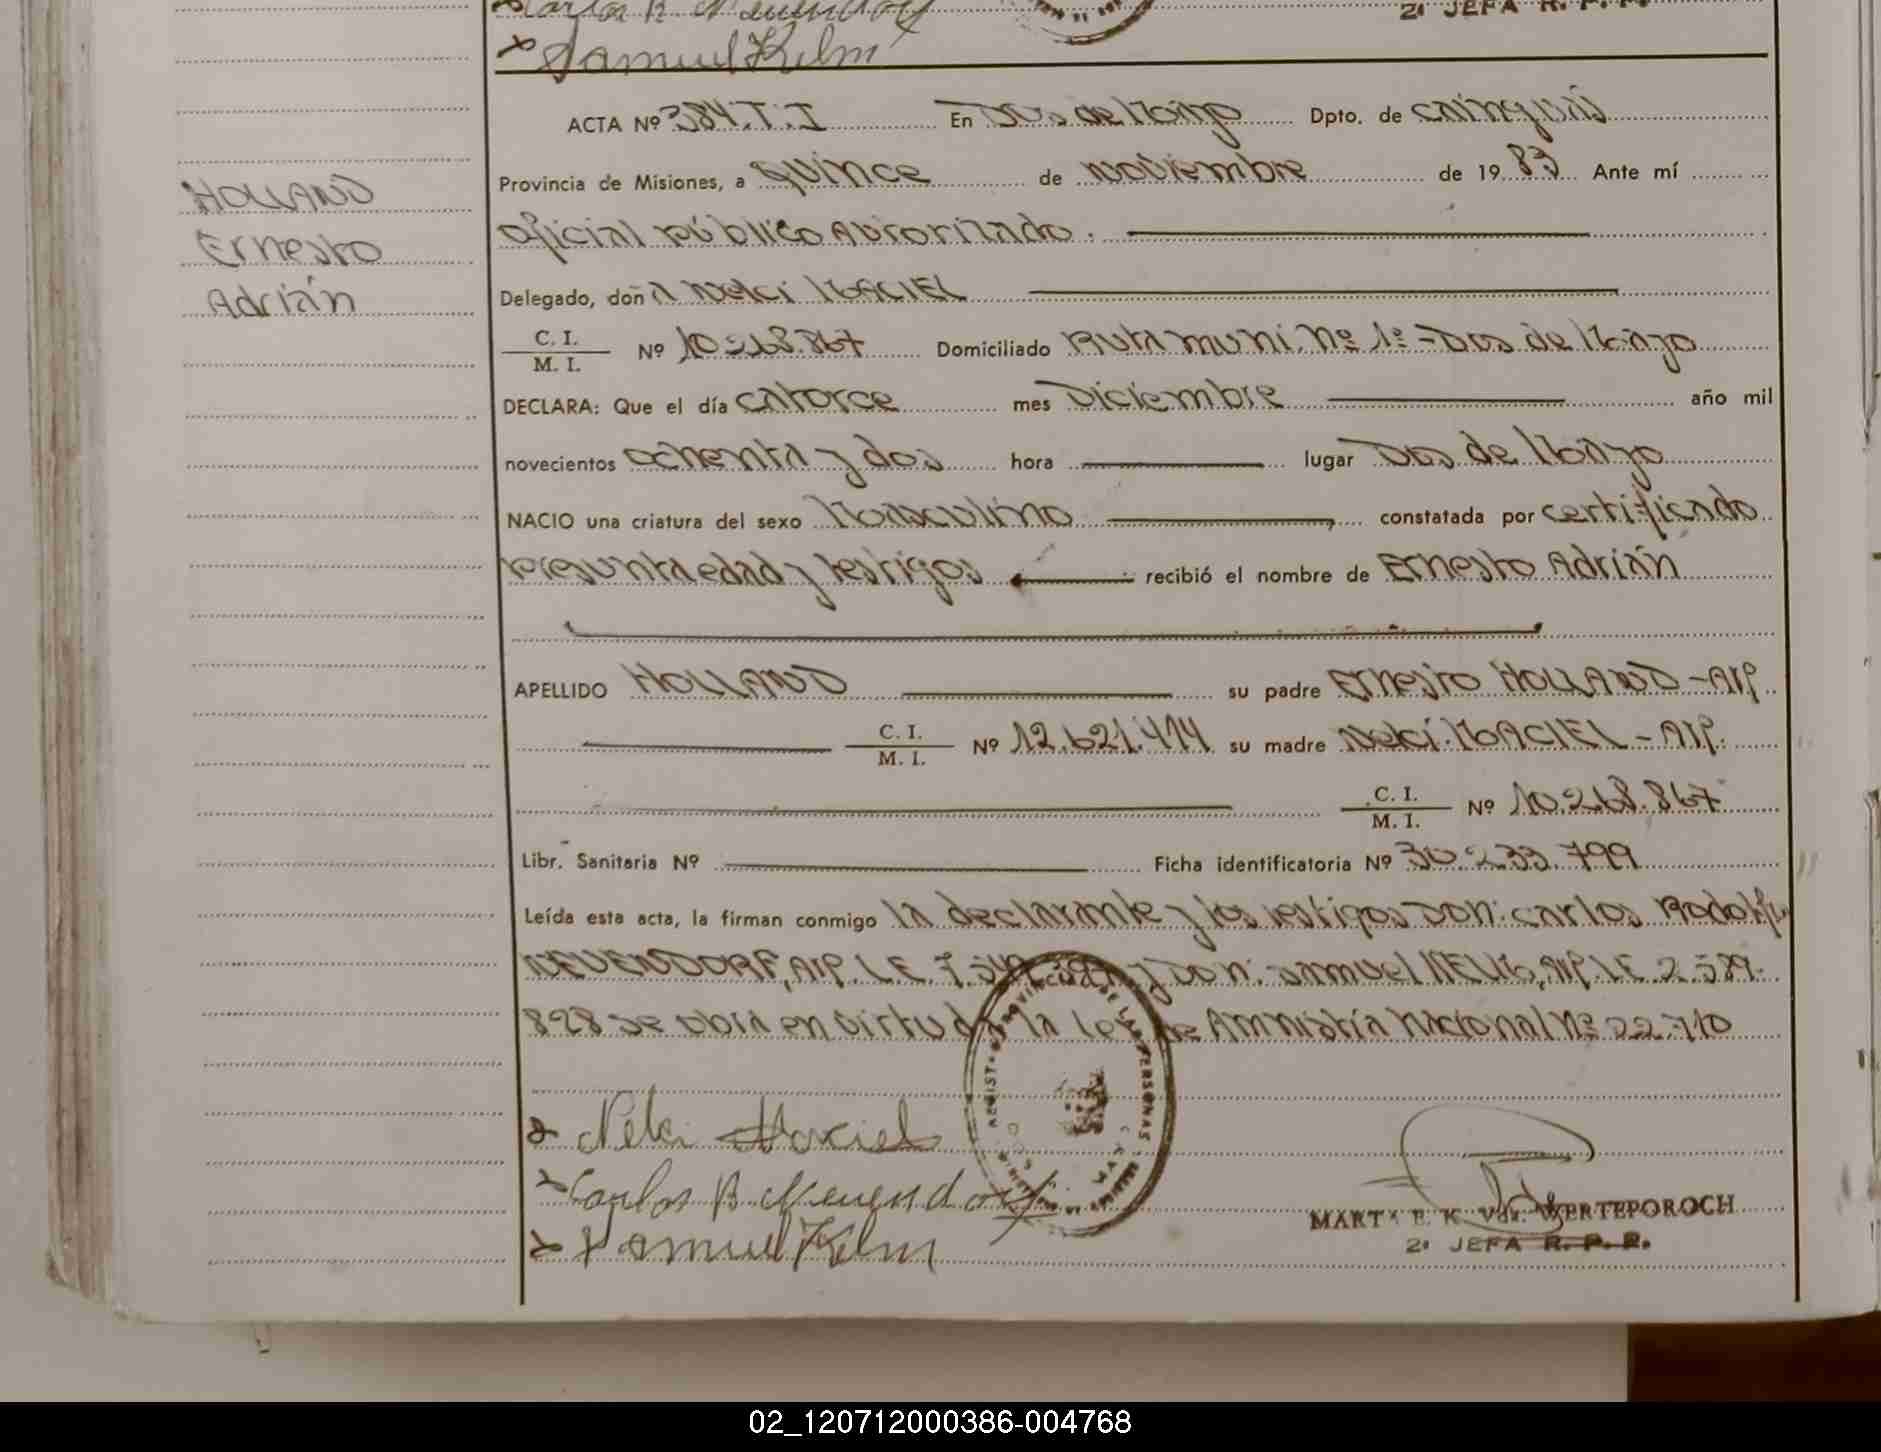 Carlos R Neuendorf
2ª JEFA R. P. P.
Samuel Kelm
ACTA Nº 384.T.I En Dos de Mayo Dpto. de Cainguás
HOLLAND
Ernesto
Adrián
Provincia de Misiones, a quince de noviembre de 1983 Ante mí
oficial público Autorizado.
Delegado, doña Nelci MACIEL
C. I. / M. I. Nº 10.268.867 Domiciliado Ruta muni. Nº 1º - Dos de Mayo
DECLARA: Que el día catorce mes Diciembre año mil
novecientos ochenta y dos hora lugar Dos de Mayo
NACIO una criatura del sexo Masculino constatada por certificado
presunta edad y testigos recibió el nombre de Ernesto Adrián
APELLIDO HOLLAND su padre Ernesto HOLLAND - Arg.
C. I. / M. I. Nº 12.621.414 su madre Nelci MACIEL - Arg.
C. I. / M. I. Nº 10.268.867
Libr. Sanitaria Nº Ficha identificatoria Nº 30.233.799
Leída esta acta, la firman conmigo la declarante y los testigos Don: Carlos Rodolfo
NEUENDORF, Arg. L.E. y Don: Samuel KELM, Arg. L.E. 2.589.
828 se obra en virtud de la Ley de Amnistía Nacional Nº 22.710
Nelci Maciel
Carlos R Neuendorf
Samuel Kelm
PROVINCIAL DE LAS PERSONAS
MARTA E. K. Vda. WERTEPOROCH
2ª JEFA R. P. P.
02_120712000386-004768